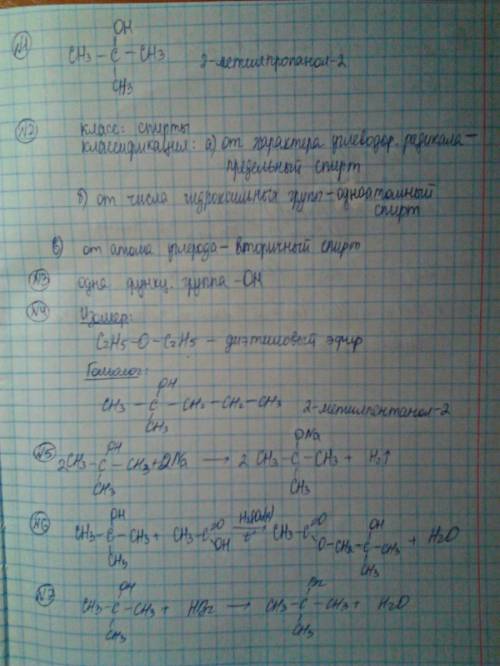 №1
OH
CH3 — C — CH3 2-метилпропанол-2
CH3
№2 класс: спирты
классификация: а) от характера углеводор. радикала —
предельный спирт
б) от числа гидроксильных групп — одноатомный
спирт
в) от атома углерода — вторичный спирт
№3 одна функц. группа -OH
№4 Изомер:
C2H5 — O — C2H5 — диэтиловый эфир
Гомолог:
OH
CH3 — C — CH2 — CH2 — CH3 2-метилпентанол-2
CH3
№5 OH ONa
2CH3 — C — CH3 + 2Na → 2 CH3 — C — CH3 + H2↑
CH3 CH3
№6 OH O O OH
CH3 — C — CH3 + CH3 — C OH t° CH3 — C O — CH2 — C — CH3 + H2O
CH3 CH3
№7 OH Br
CH3 — C — CH3 + HBr → CH3 — C — CH3 + H2O
CH3 CH3